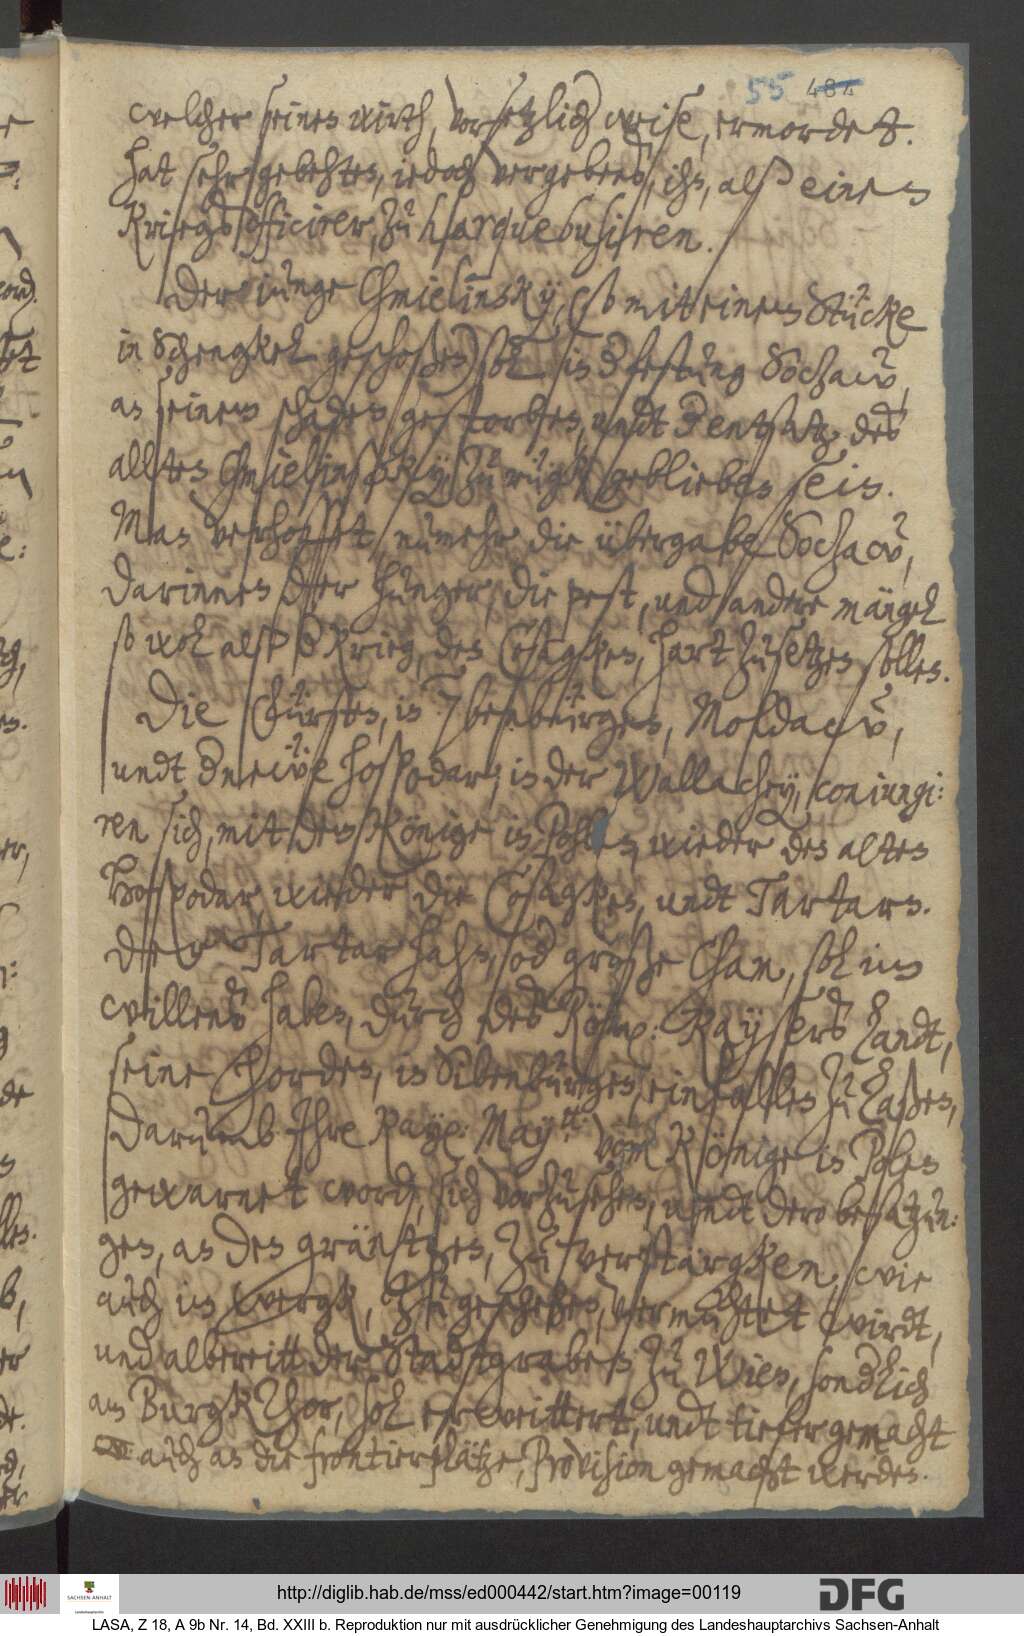 55 484
welcher seinen wirth, vorsetzlich weise, ermordett.
hat sehr gebehten, iedoch vergebens, ihn, alß einen
Kriegsofficirer, zu harquebusiren.
Der iunge Chmielinsky, (so mit einem Stücke
in Schengkel geschoßen) soll in der festung Sochaw,
an seinem schaden gestorben, undt der entsatz des
allten Chmielinsky, zu rügk geblieben sein.
Man verhofft, numehr die übergabe Sochaw,
darinnen der hunger, die pest, und andere mängel
so wol alß der Krieg, den Cosagken, hart zusetzen sollen.
Die Fürsten, in Sibenbürgen, Moldaw,
undt der neẅe hospodar, in der Wallachey, coniungi:
ren sich, mit dem Könige in Pohlen, wieder den alten
Hospodar, wieder die Cosagken, undt Tartarn.
der Tartar hahn, oder große Cham, soll im
willens haben, durch des Röm: Kaysers Landt,
seine horden, in Sibenbürgen, einfallen zu laßen,
darumb Ihre Kay: May: vom Könige in Polen
gewarnet word, sich vorzusehen, undt dero besatzun:
gen, an den gräntzen, zu verstärgken, wie
auch im wergk, zu geschehen, vermuhtet wirdt,
und albereitt der Stadtgraben zu Wien, sondlich
am Burgk Thor, soll erweittert, undt tiefer gemacht
auch an die frontierplätze, Provision gemacht werden.
http://diglib.hab.de/mss/ed000442/start.htm?image=00119
SACHSEN-ANHALT
Landeshauptarchiv
DFG
LASA, Z 18, A 9b Nr. 14, Bd. XXIII b. Reproduktion nur mit ausdrücklicher Genehmigung des Landeshauptarchivs Sachsen-Anhalt